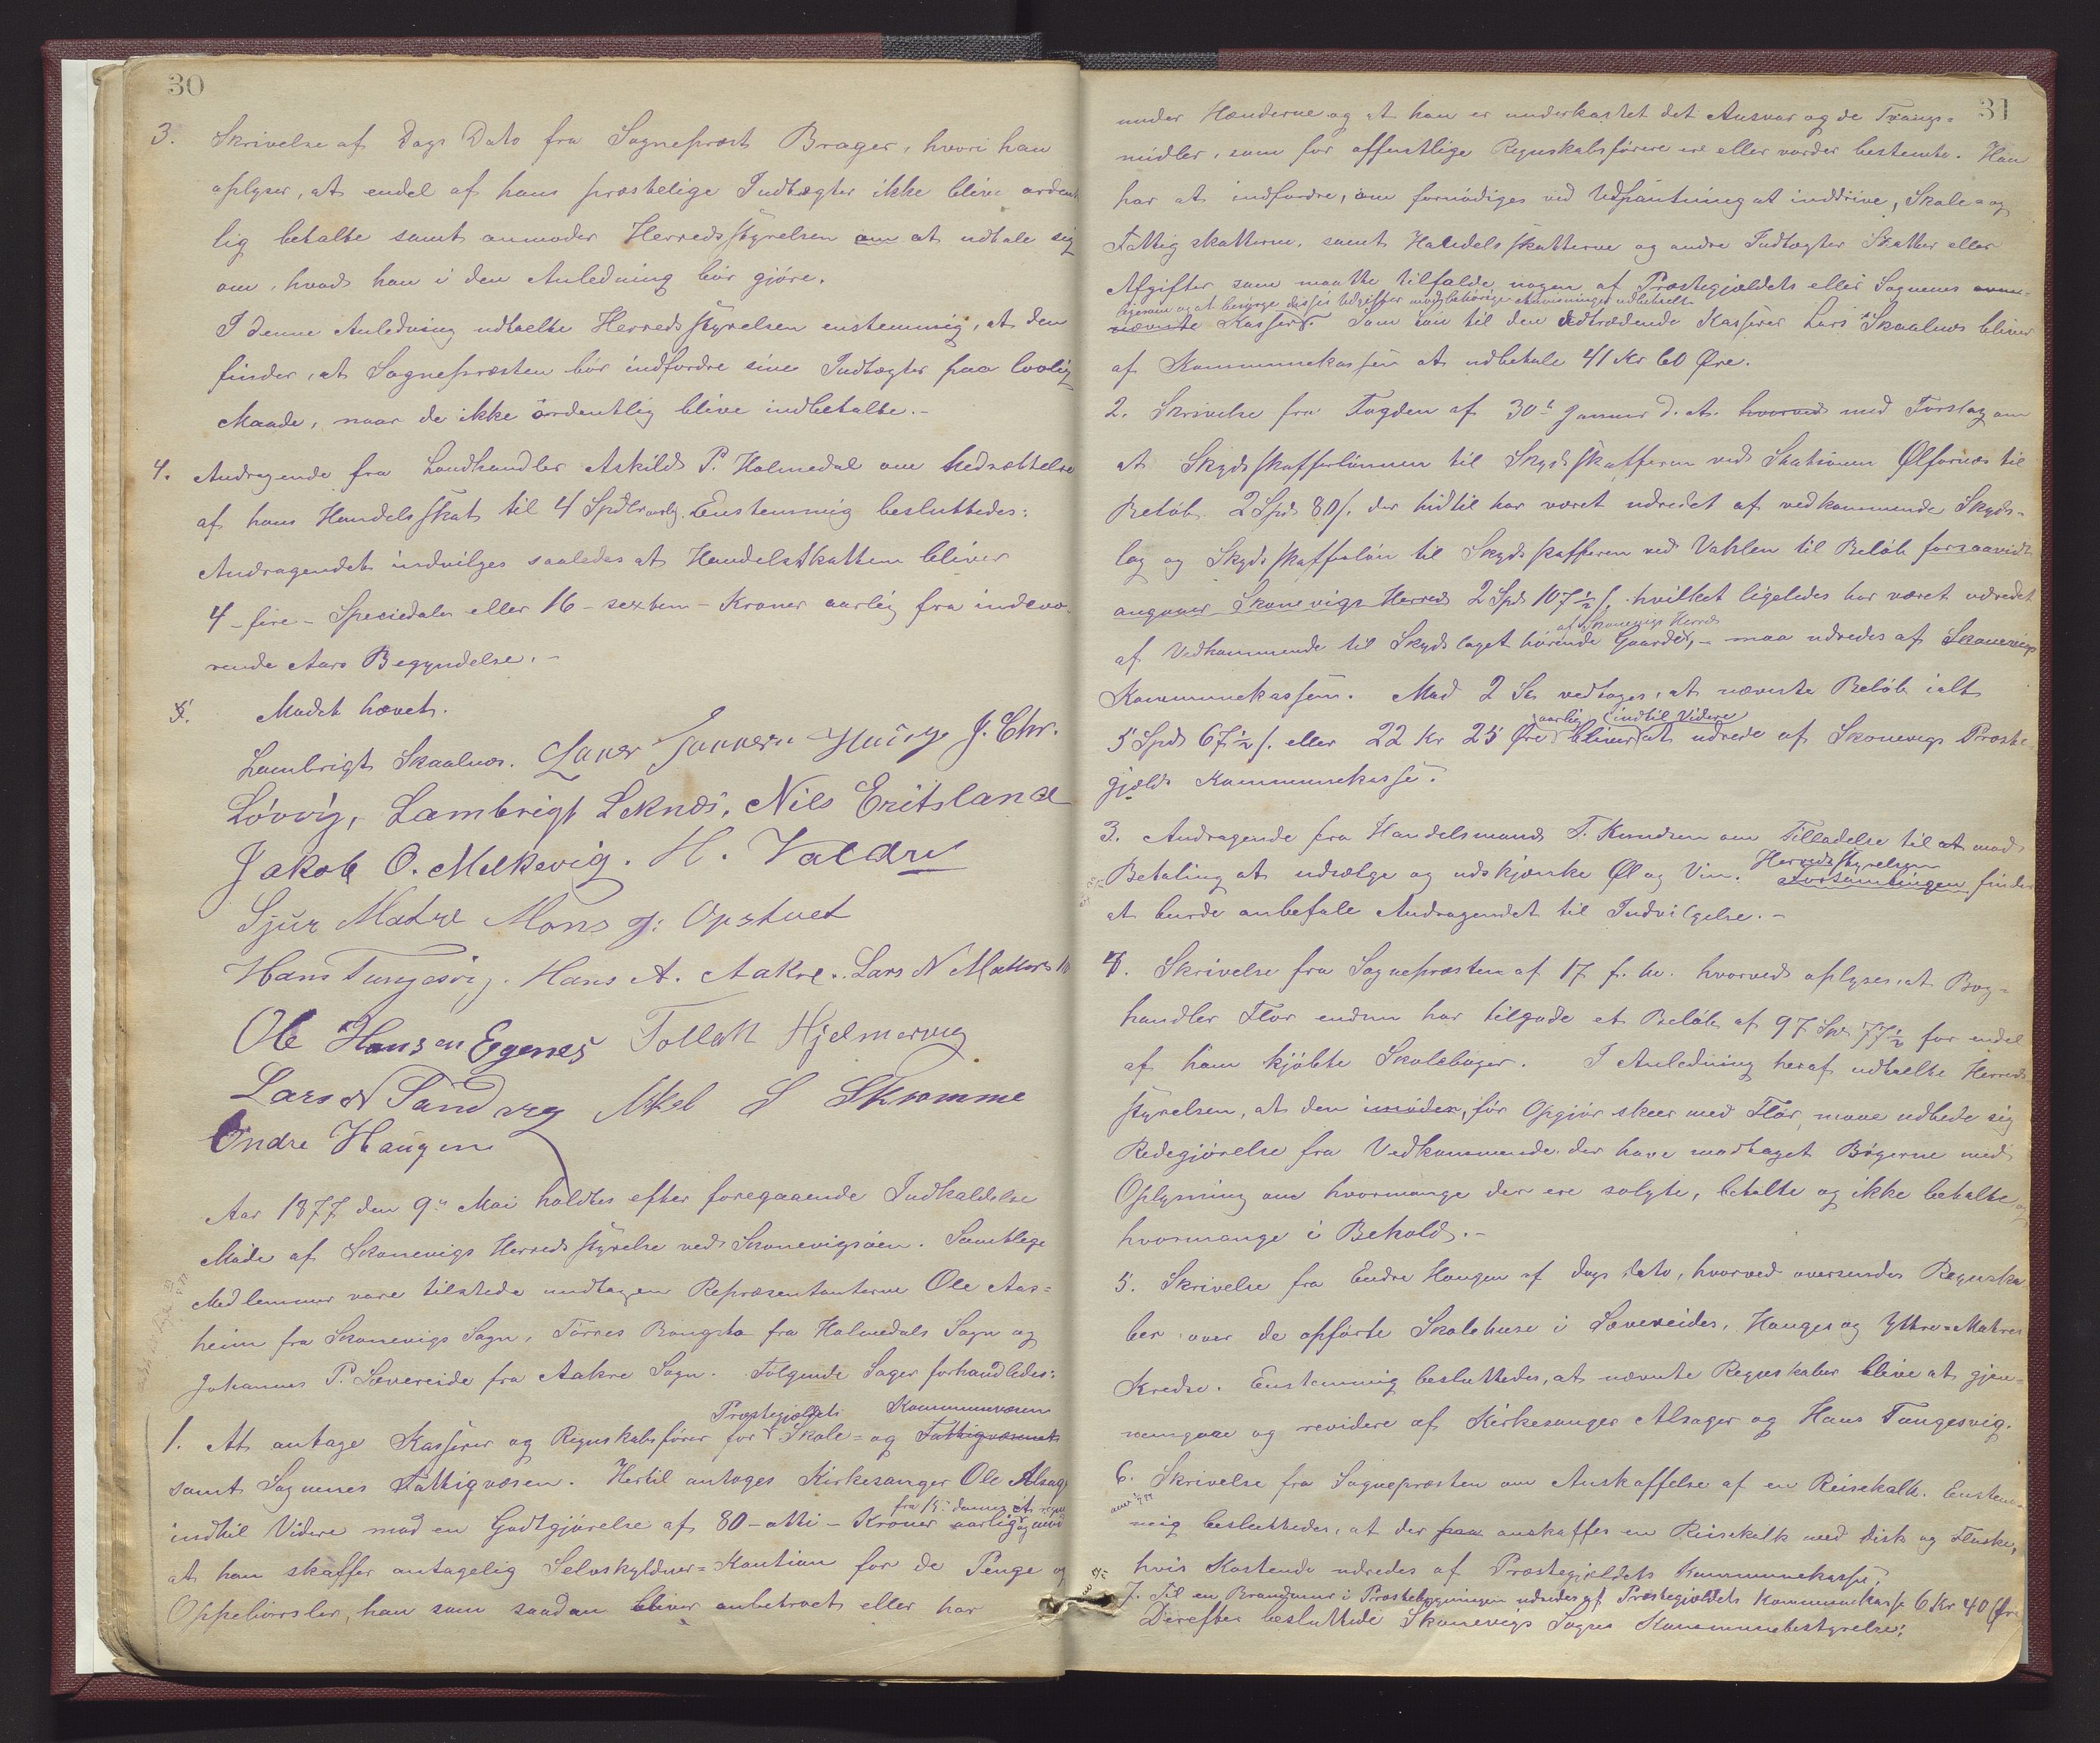 30
3. Skrivelse af Dags Dato fra Sognepræst Brager, hvori han
oplyser, at endel af hans præstelige Indtægter ikke blive ordent
lig betalte samt anmoder Herredsstyrelsen om at udtale sig
om, hvad han i den Anledning bør gjøre.
I denne Anledning udtalte Herredsstyrelsen enstemmig, at den
finder, at Sognepræsten bør indfordre sine Indtægter paa lovlig
Maade, naar de ikke ordentlig blive indbetalte.-
4. Andragende fra Landhandler Askild P. Holmedal om Nedsættelse
af hans Handelsskat til 4 Spdlr aarlg. Enstemmig besluttedes:
Andragendet indvilges saaledes at Handelsskatten bliver
4 - fire - Speciedaler eller 16 - sexten - Kroner aarlig fra indevæ
rende Aars Begyndelse.-
5. Mødet hævet.
Lambrigt Skaalnæs. J. Chr.
Løvvig, Lambrigt Leknes, Nils Eritsland
Jakob O. Milkevig. H. Valdre
Sjur Matre Mons J: Opstvet
Hans Tungesvig. Hans A. Aakre. Lars N Matters
Ole Hansen Egenes Tollak Hjelmervig
Lars N Sandvig Mikel S Skromme
Endre Haugen
Aar 1877 den 9de Mai holdtes efter foregaaende Indkaldelse
Møde af Skonevigs Herredsstyrelse ved Skonevigsøen. Samtlige
Medlemmer vare tilstede undtagen Repræsentanterne Ole Aas=
heim fra Skonevigs Sogn, Tørres Bangsta fra Holmedals Sogn og
Johannes P. Sævereide fra Aakre Sogn. Følgende Sager forhandledes:
Præstegjældets Kommunevæsen
1. At antage Kasserer og Regnskabsfører for Skole= og Fattigvæsenet
samt Sognenes Fattigvæsen. Hertil antoges Kirkesanger Ole Alsag
fra 1ste Januar
indtil Videre mod en Godtgjørelse af 80 - otti - Kroner aarlig og mod
at han skaffer antagelig Selvskyldner=Kaution for de Penge og
Oppebørsler, han som saadan bliver anbetroet eller har
31
under Hænderne og at han er underkastet det Ansvar og de Tvangs=
midler, som for offentlige Regnskabsførere ere eller vorder bestemte. Han
har at indfordre, om fornødiges ved Udpantning at inddrive, Skole= og
Fattigskatterne, samt Handelsskatterne og andre Indtægter Skatter eller
Afgifter som maatte tilfalde nogen af Præstegjældets eller Sognenes
ligesom og at besørge disses Udgifter mod behørige Anvisninger udbetalt
nævnte Kasser. Som Løn til den udtrædende Kasserer Lars Skaalnæs bliver
af Kommunekassen at udbetale 41 Kr 60 Øre.
2. Skrivelse fra Fogden af 30te Januar d. A. hvorved med Forslag om
at Skydsskafferlønnen til Skydsskafferen ved Stationen Ølfernæs til
Beløb 2 Spd 80 s. der hidtil har været udredet af vedkommende Skyds=
lag og Skydsskafferløn til Skydsskafferen ved Vaklen til Beløb forsaavidt
angaaer Skonevigs Herred 2 Spd 107½ s. hvilket ligeledes har været udredet
af Skonevigs Herred
af Vedkommende til Skydslaget hørende Gaarde, - maa udredes af Skonevigs
Kommunekassen. Mod 2 St. vedtoges, at nævnte Beløb ialt
aarlig indtil Videre
5 Spd 67½ s. eller 22 Kr 25 Øre bliver at udrede af Skonevigs Præste
gjælds Kommunekasse.
3. Andragende fra Handelsmand T. Knudsen om Tilladelse til at mod
Betaling at udsælge og udskjænke Øl og Vin. Herredsstyrelsen
Forsamlingen finder
at burde anbefale Andragendet til Indvilgelse.-
4. Skrivelse fra Sognepræsten af 17 f. M. hvorved oplyses, at Bog=
handler Flor endnu har tilgode et Beløb af 97 Spd 77½ for endel
af ham kjøbte Skolebøger. I Anledning heraf udtalte Herreds
styrelsen, at den, før Opgjør skeer med Flor, maae udbede sig
Redegjørelse fra Vedkommende der have modtaget Bøgerne med
Oplysning om hvormange der ere solgte, betalte og ikke betalte og
hvormange i Behold.-
5. Skrivelse fra Endre Haugen af Dags Dato, hvorved oversendes Regnska
ber over de opførte Skolehuse i Sævereides, Hauges og Yttre=Matres
Kredse. Enstemmig besluttedes, at nævnte Regnskaber blive at gjen=
nemgaae og revidere af Kirkesanger Alsager og Hans Tungesvig.
6. Skrivelse fra Sognepræsten om Anskaffelse af en Reisekalk. Enstem=
mig besluttedes, at der paa anskaffes en Reisekalk med Disk og Flaske,
hvis Kostende udredes af Præstegjældets Kommunekasse.
7. Til en Brandmur i Præstebygningen udredes af Præstegjældets Kommunekasse 6 Kr 40 Øre
Derefter besluttede Skonevigs Sogns Kommunebestyrelse: